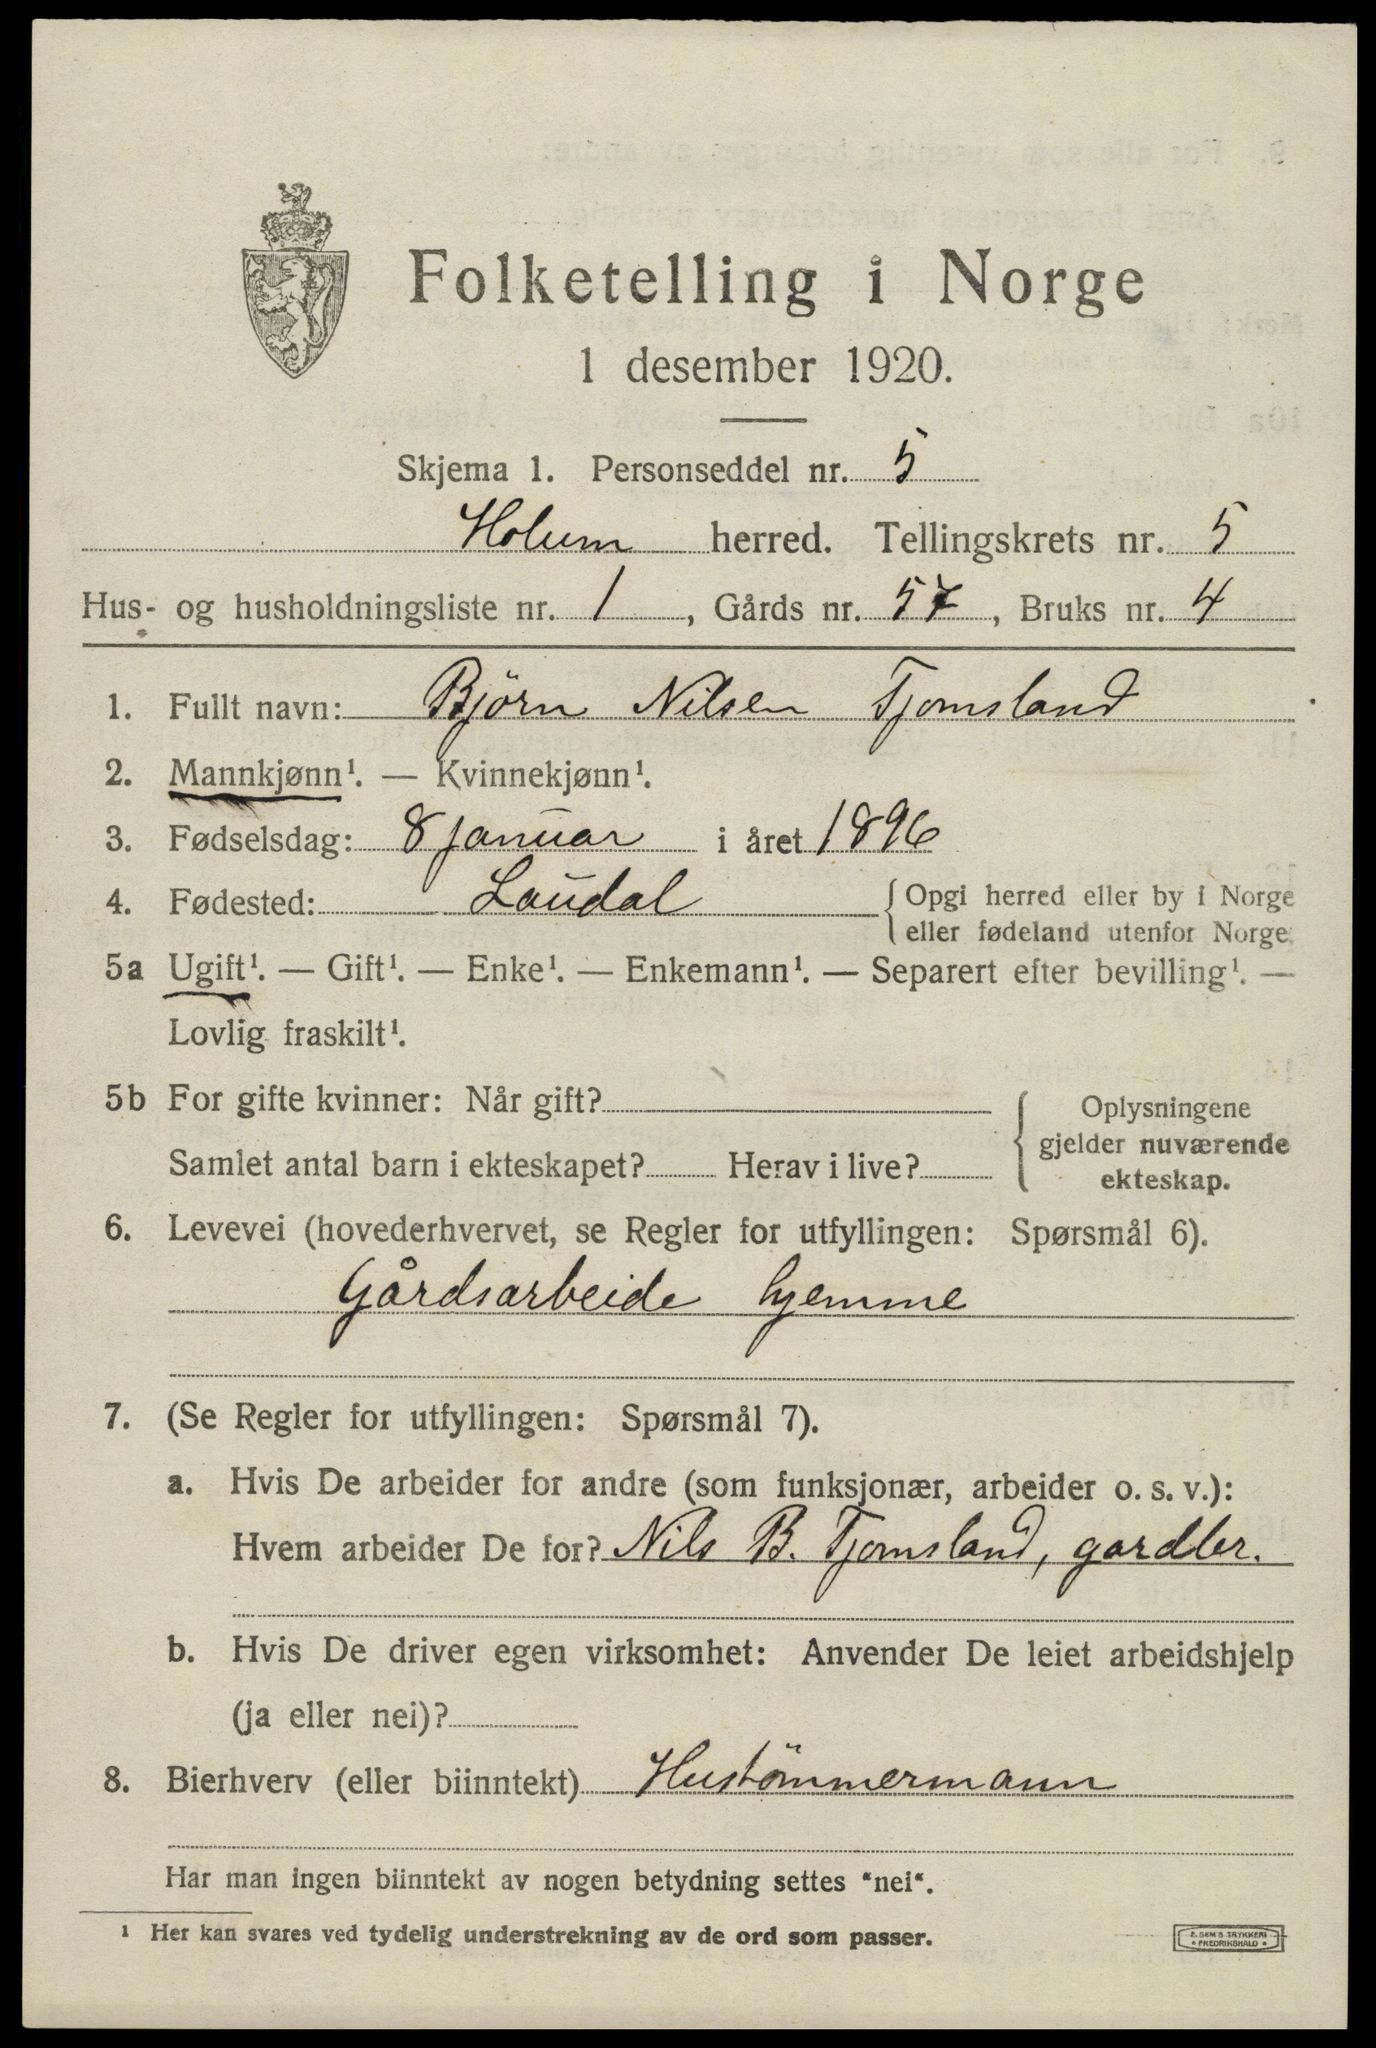 Folketelling i Norge
1 desember 1920.
Skjema 1. Personseddel nr. 5
Holum herred. Tellingskrets nr. 5
Hus- og husholdningsliste nr. 1, Gårds nr. 57, Bruks nr. 4
1. Fullt navn: Björn Nilsen Tjomsland
2. Mannkjønn¹. — Kvinnekjønn¹.
3. Fødselsdag: 8 januar i året 1896
4. Fødested: Laudal { Opgi herred eller by i Norge
eller fødeland utenfor Norge.
5a Ugift¹. — Gift¹. — Enke¹. — Enkemann¹. — Separert efter bevilling¹. —
Lovlig fraskilt¹.
5b For gifte kvinner: Når gift?
Samlet antal barn i ekteskapet? Herav i live?
{ Oplysningene
gjelder nuværende
ekteskap.
6. Levevei (hovederhvervet, se Regler for utfyllingen: Spørsmål 6).
Gårdsarbeide hjemme
7. (Se Regler for utfyllingen: Spørsmål 7).
a. Hvis De arbeider for andre (som funksjonær, arbeider o. s. v.):
Hvem arbeider De for? Nils B. Tjomsland, gardbr.
b. Hvis De driver egen virksomhet: Anvender De leiet arbeidshjelp
(ja eller nei)?
8. Bierhverv (eller biinntekt) Hustömmermann
Har man ingen biinntekt av nogen betydning settes "nei".
¹ Her kan svares ved tydelig understrekning av de ord som passer.
E. SEM'S TRYKKERI
FREDRIKSHALD